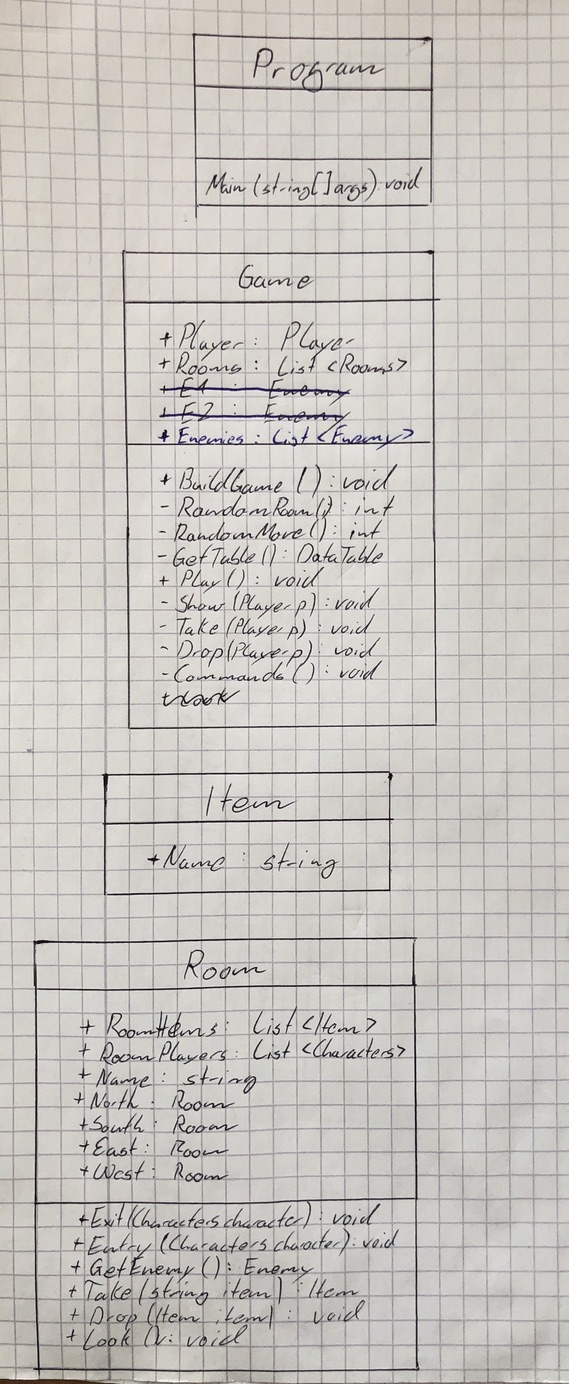 Program
Main (string[] args): void
Game
+ Player : Player
+ Rooms : List <Rooms>
+ E1 : Enemy
+ E2 : Enemy
+ Enemies : List <Enemy>
+ BuildGame () : void
- RandomRoom() : int
- RandomMove() : int
- GetTable () : DataTable
+ Play () : void
- Show (Player p) : void
- Take (Player p) : void
- Drop (Player p) : void
- Commands () : void
Item
+ Name : string
Room
+ RoomItems : List <Item>
+ RoomPlayers : List <Characters>
+ Name : string
+ North : Room
+ South : Room
+ East : Room
+ West : Room
+ Exit (Characters character) : void
+ Entry (Characters character) : void
+ GetEnemy () : Enemy
+ Take (string item) : Item
+ Drop (Item item) : void
+ Look () : void